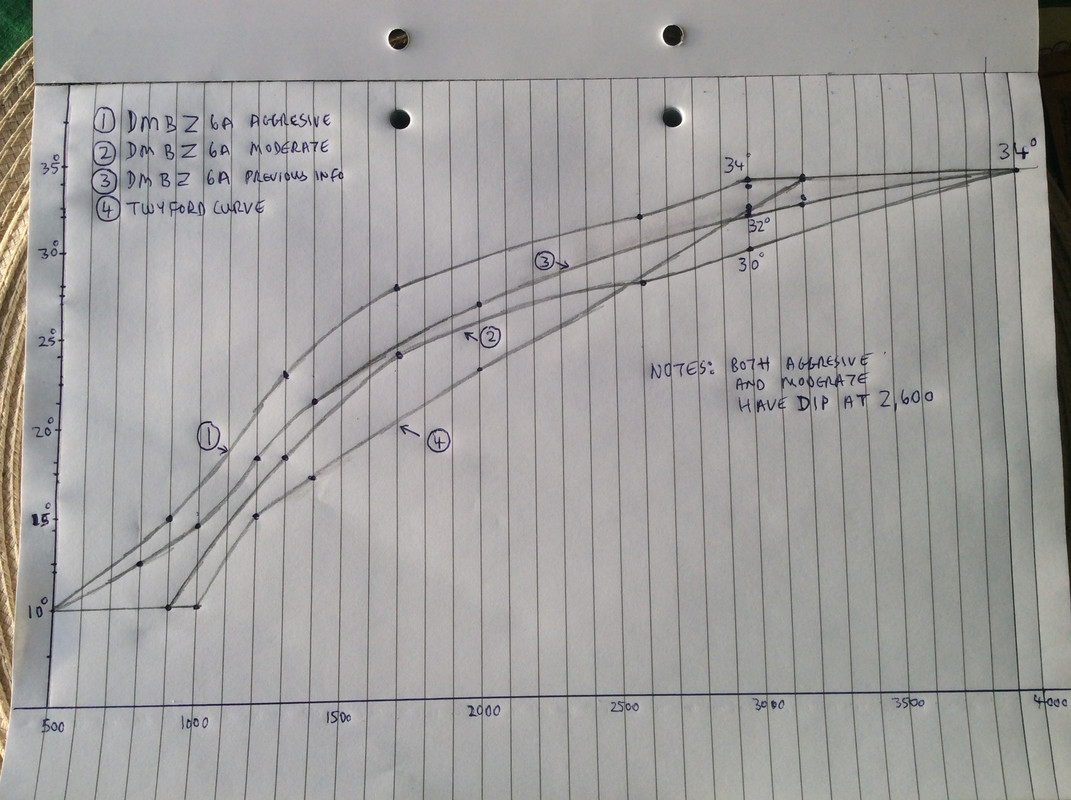 ① DMBZ 6A AGGRESIVE
② DMBZ 6A MODERATE
③ DMBZ 6A PREVIOUS INFO
④ TWYFORD CURVE
35°
30°
25°
20°
15°
10°
34°
34°
32°
30°
③
②
①
④
NOTES: BOTH AGGRESIVE
AND MODERATE
HAVE DIP AT 2,600
500
1000
1500
2000
2500
3000
3500
4000